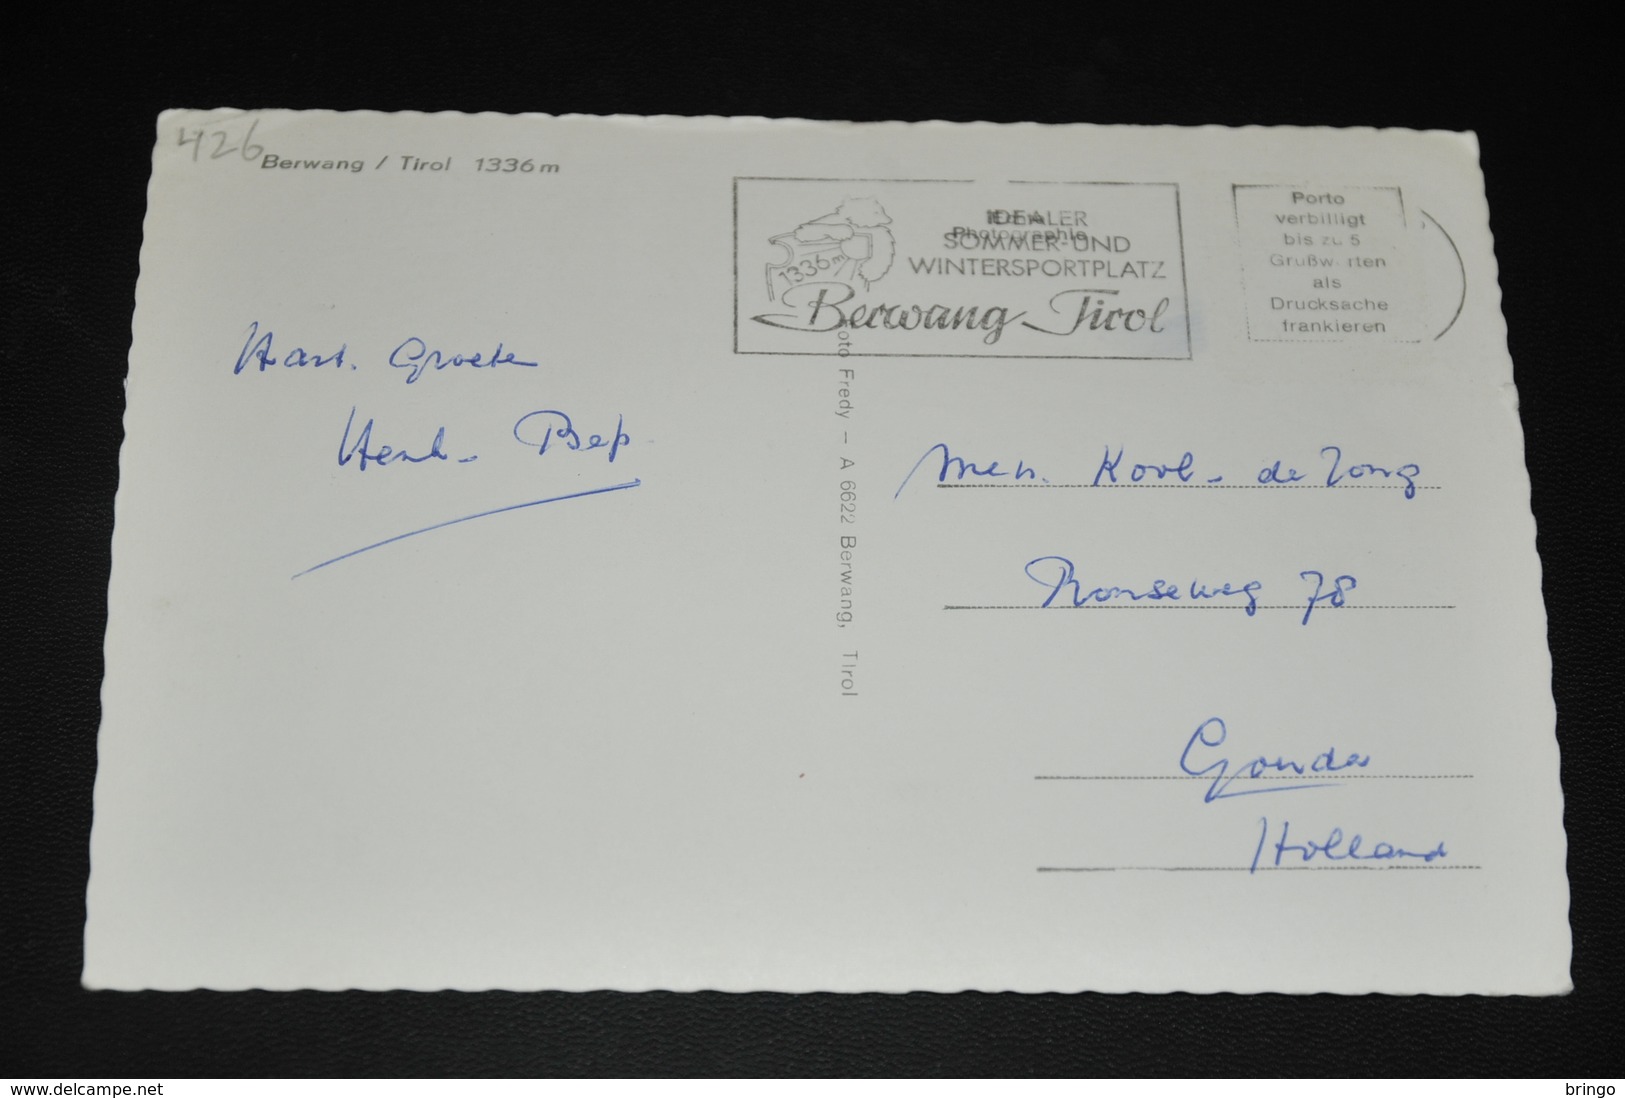 426
Berwang / Tirol 1336 m
IDEALER
Photographie
SOMMER-UND
WINTERSPORTPLATZ
1336 m
Berwang Tirol
Porto
verbilligt
bis zu 5
Grußworten
als
Drucksache
frankieren
Hart. Groeten
Henk - Bep
Foto Fredy – A 6622 Berwang, Tirol
Men. Korl - de Jong
Ronseweg 78
Gouda
Holland
www.delcampe.net
bringo